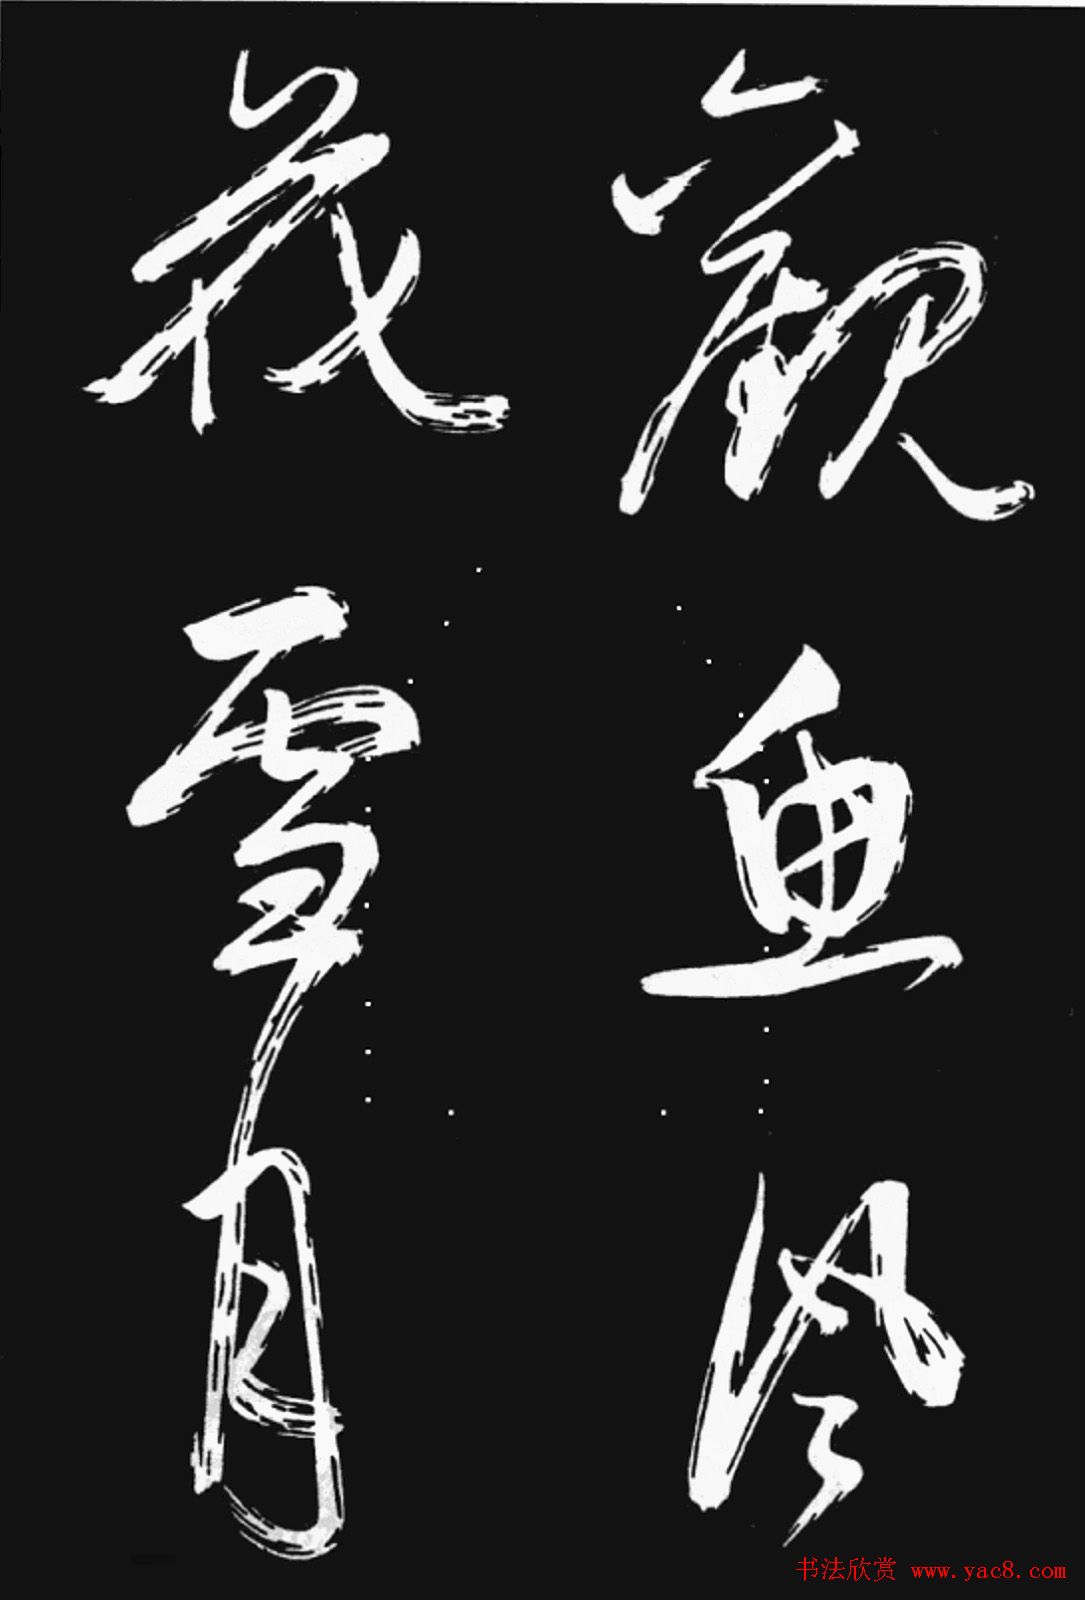 觀魚風
花雪月
书法欣赏 www.yac8.com